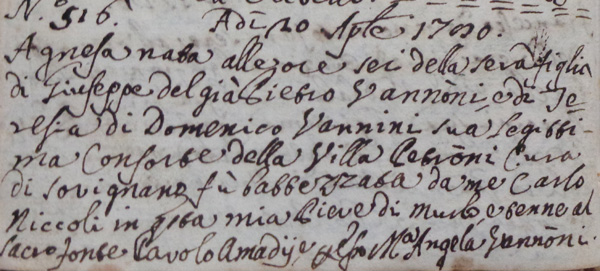 N.º 516.
Adì 20 Aple 1780.
Agnesa nata alle ore sei della sera figlia
di Giuseppe del già Pietro Vannōni, e di Te-
resia di Domenico Vannini sua legitti-
ma Consorte della Villa Petrōni Cura
di sovignano fù battezzata da me Carlo
Niccoli in qsta mia Pieve di Murlo, e tenne al
sacro fonte Pavolo Amadij, M.a Angela Vannōni.